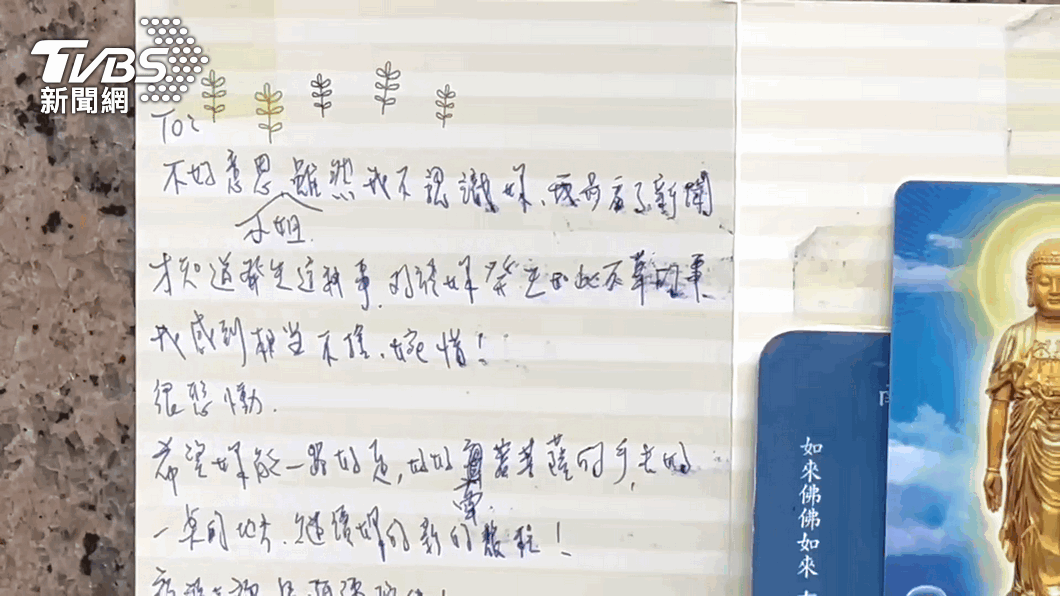 TVBS
新聞網
To:
不好意思 雖然我不認識妳、難過看了新聞
小姐.
才知道發生這種事. 妳發生如此不幸的事
我感到相當不捨、惋惜！
很悲慟.
希望妳能一路好走, 好好牽著菩薩的手, 去
的地方. 繼續妳的新的旅程！
如來佛佛如來